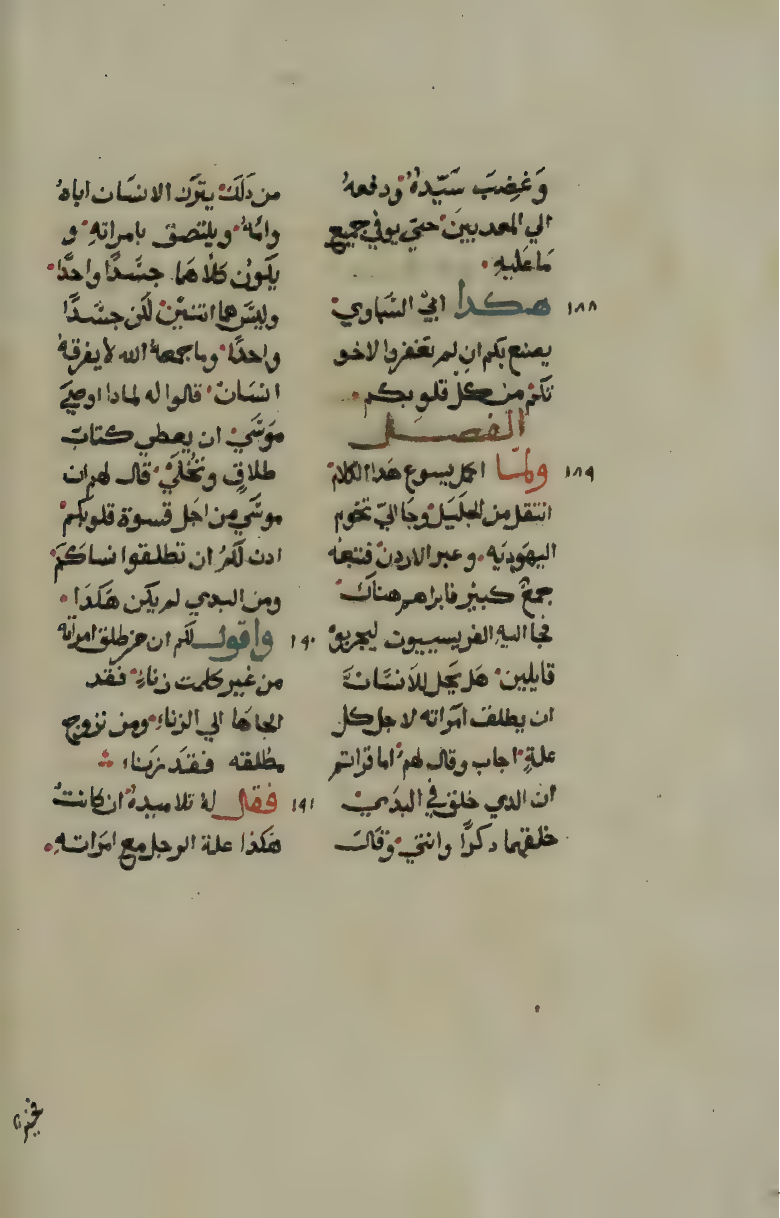 وَغضِبَ سَيّدهُ ودفعهُ
الي المعدبين حتي يوفي جميع
مَاعَليهِ
١٨٨ هكدا ابي السّماوي
يصنع بكم ان لم تغفروا لاخو
تكم من كل قلوبكم
الفصل
١٨٩ ولمّا اكمل يسوع هَدا الكلام
انتقل من الجليل وجا الي تخوم
اليهوديه وعبر الاردن فتبعه
جمعٌ كبيرٌ فابراهم هناك
فجا اليهِ الفريسييون ليجربوهُ
قايلين هَل يحل للانسَان
ان يطلف امراته لاجل كل
علةٍ اجاب وقال لهم اما قراتم
ان الدي خلق في البدي
خلقهما دكرًا وانثي وقال
من دَلك يترك الانسَان اباهُ
وامّهُ ويلتصق بامراتهِ و
يكون كلاهما جسَدًا واحدًا
وليسَ هما اتنين لكن جسَدًا
واحدًا وما جمعهُ الله لا يفرقهُ
انسَان قالوا له لمادا اوصَي
موسَي ان يعطي كتاب
طلاقٍ وتخلي قال لهم ان
موسَي من اجل قسوة قلوبكم
ادن لكم ان تطلقوا نساكم
ومن البدي لم يكن هَكدَا
١٩٠ واقول لكم ان من طلق امراته
من غير كلمت زناءٍ فقد
الجاهَا الي الزناء ومن تزوج
مطلقه فقد زناء
١٩١ فقال لهُ تلاميدهُ ان كانت
هَكذا علة الرجل مع امرَاتهِ